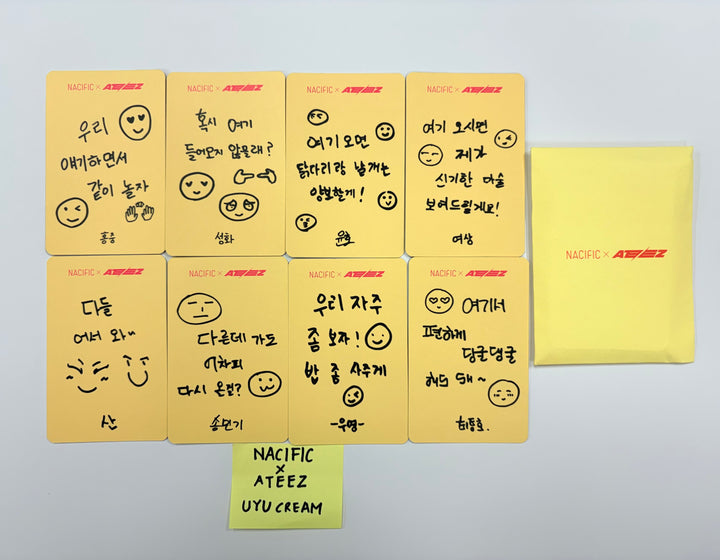 NACIFIC × ATEEZ
우리
얘기하면서
같이 놀자
홍중
NACIFIC × ATEEZ
혹시 여기
들어오지 않을래?
성화
NACIFIC × ATEEZ
여기 오면
닭다리랑 날개는
양보할게!
윤호
NACIFIC × ATEEZ
여기 오시면
제가
신기한 마술
보여드릴게요!
여상
NACIFIC × ATEEZ
NACIFIC × ATEEZ
다들
어서 와~
산
NACIFIC × ATEEZ
다른데 가도
어차피
다시 올걸?
송민기
NACIFIC × ATEEZ
우리 자주
좀 보자!
밥 좀 사주게
-우영-
NACIFIC × ATEEZ
여기서
편하게
딩굴댕굴
해도 돼~
최종호.
NACIFIC
×
ATEEZ
UYU CREAM